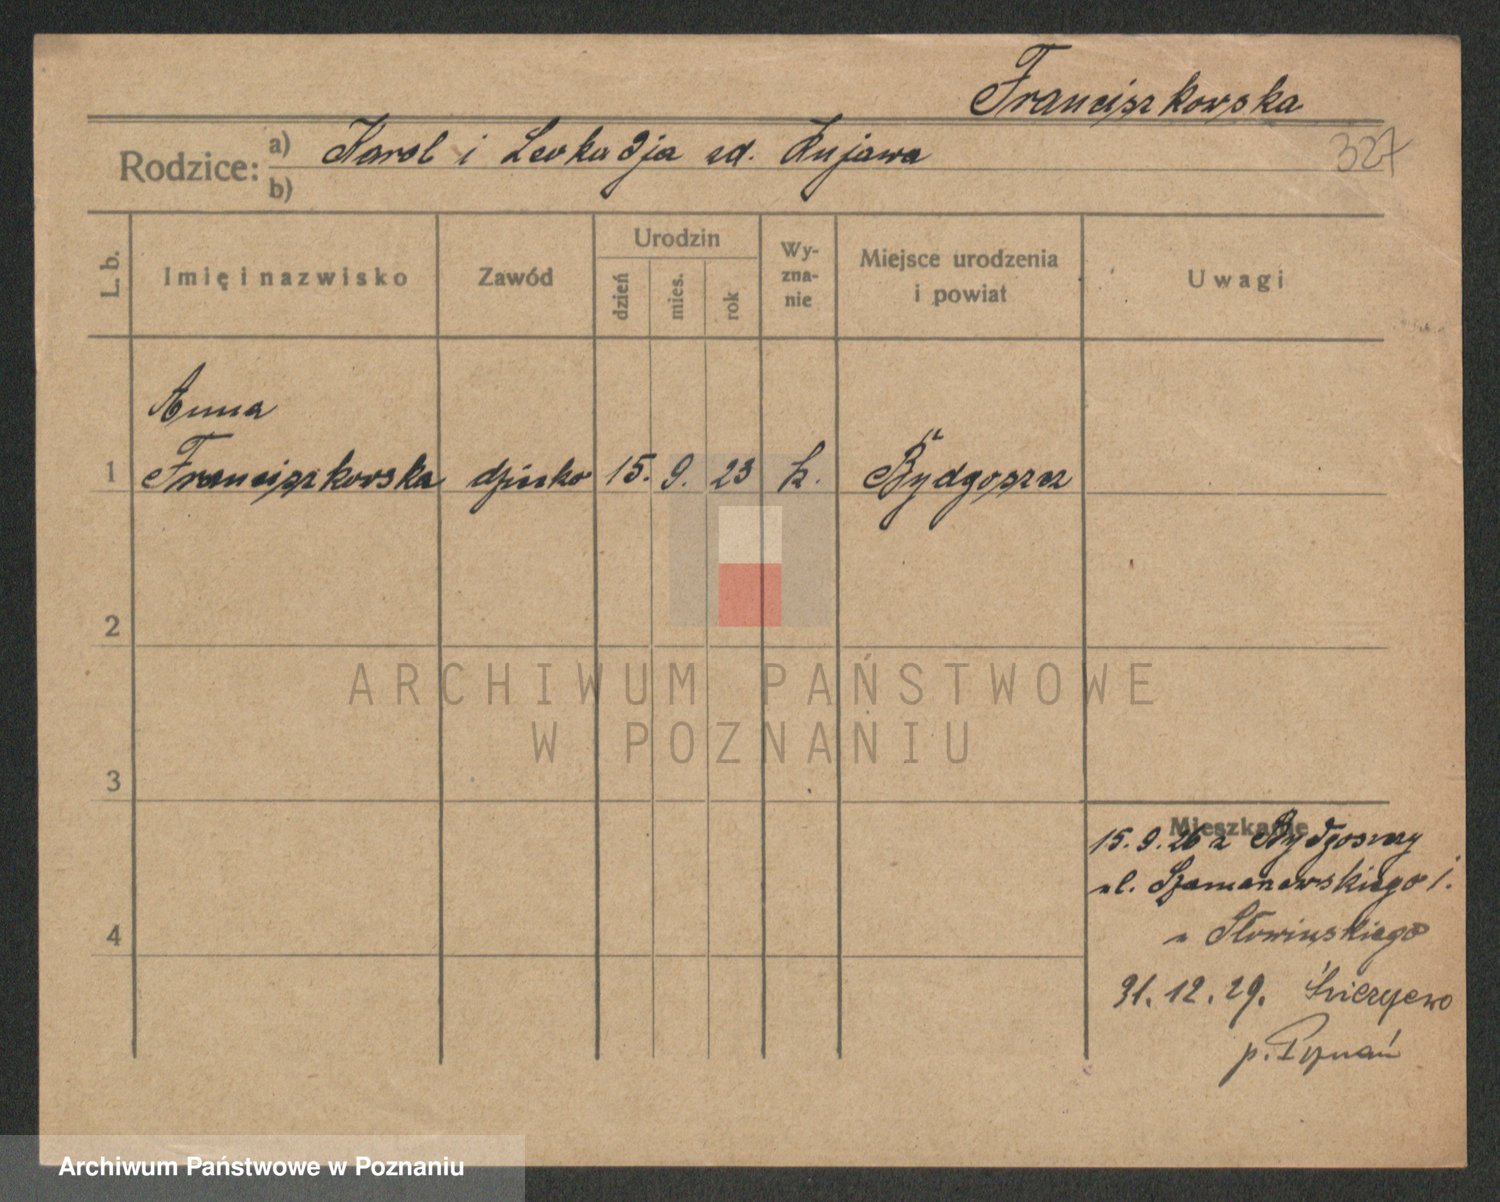 Franciszkowska
327
Rodzice: a) Karol i Leokadja zd. Kujawa
b)
L. b. Imię i nazwisko Zawód Urodzin dzień mies. rok Wyznanie Miejsce urodzenia i powiat Uwagi
Anna
1 Franciszkowska dziecko 15. 9. 23 k. Bydgoszcz
2
ARCHIWUM PAŃSTWOWE
W POZNANIU
3
Mieszkanie
15.9.26 z Bydgoszczy
ul. Szamarzewskiego 1.
4
u Słowińskiego
31.12.29.
p. Poznań
Archiwum Państwowe w Poznaniu